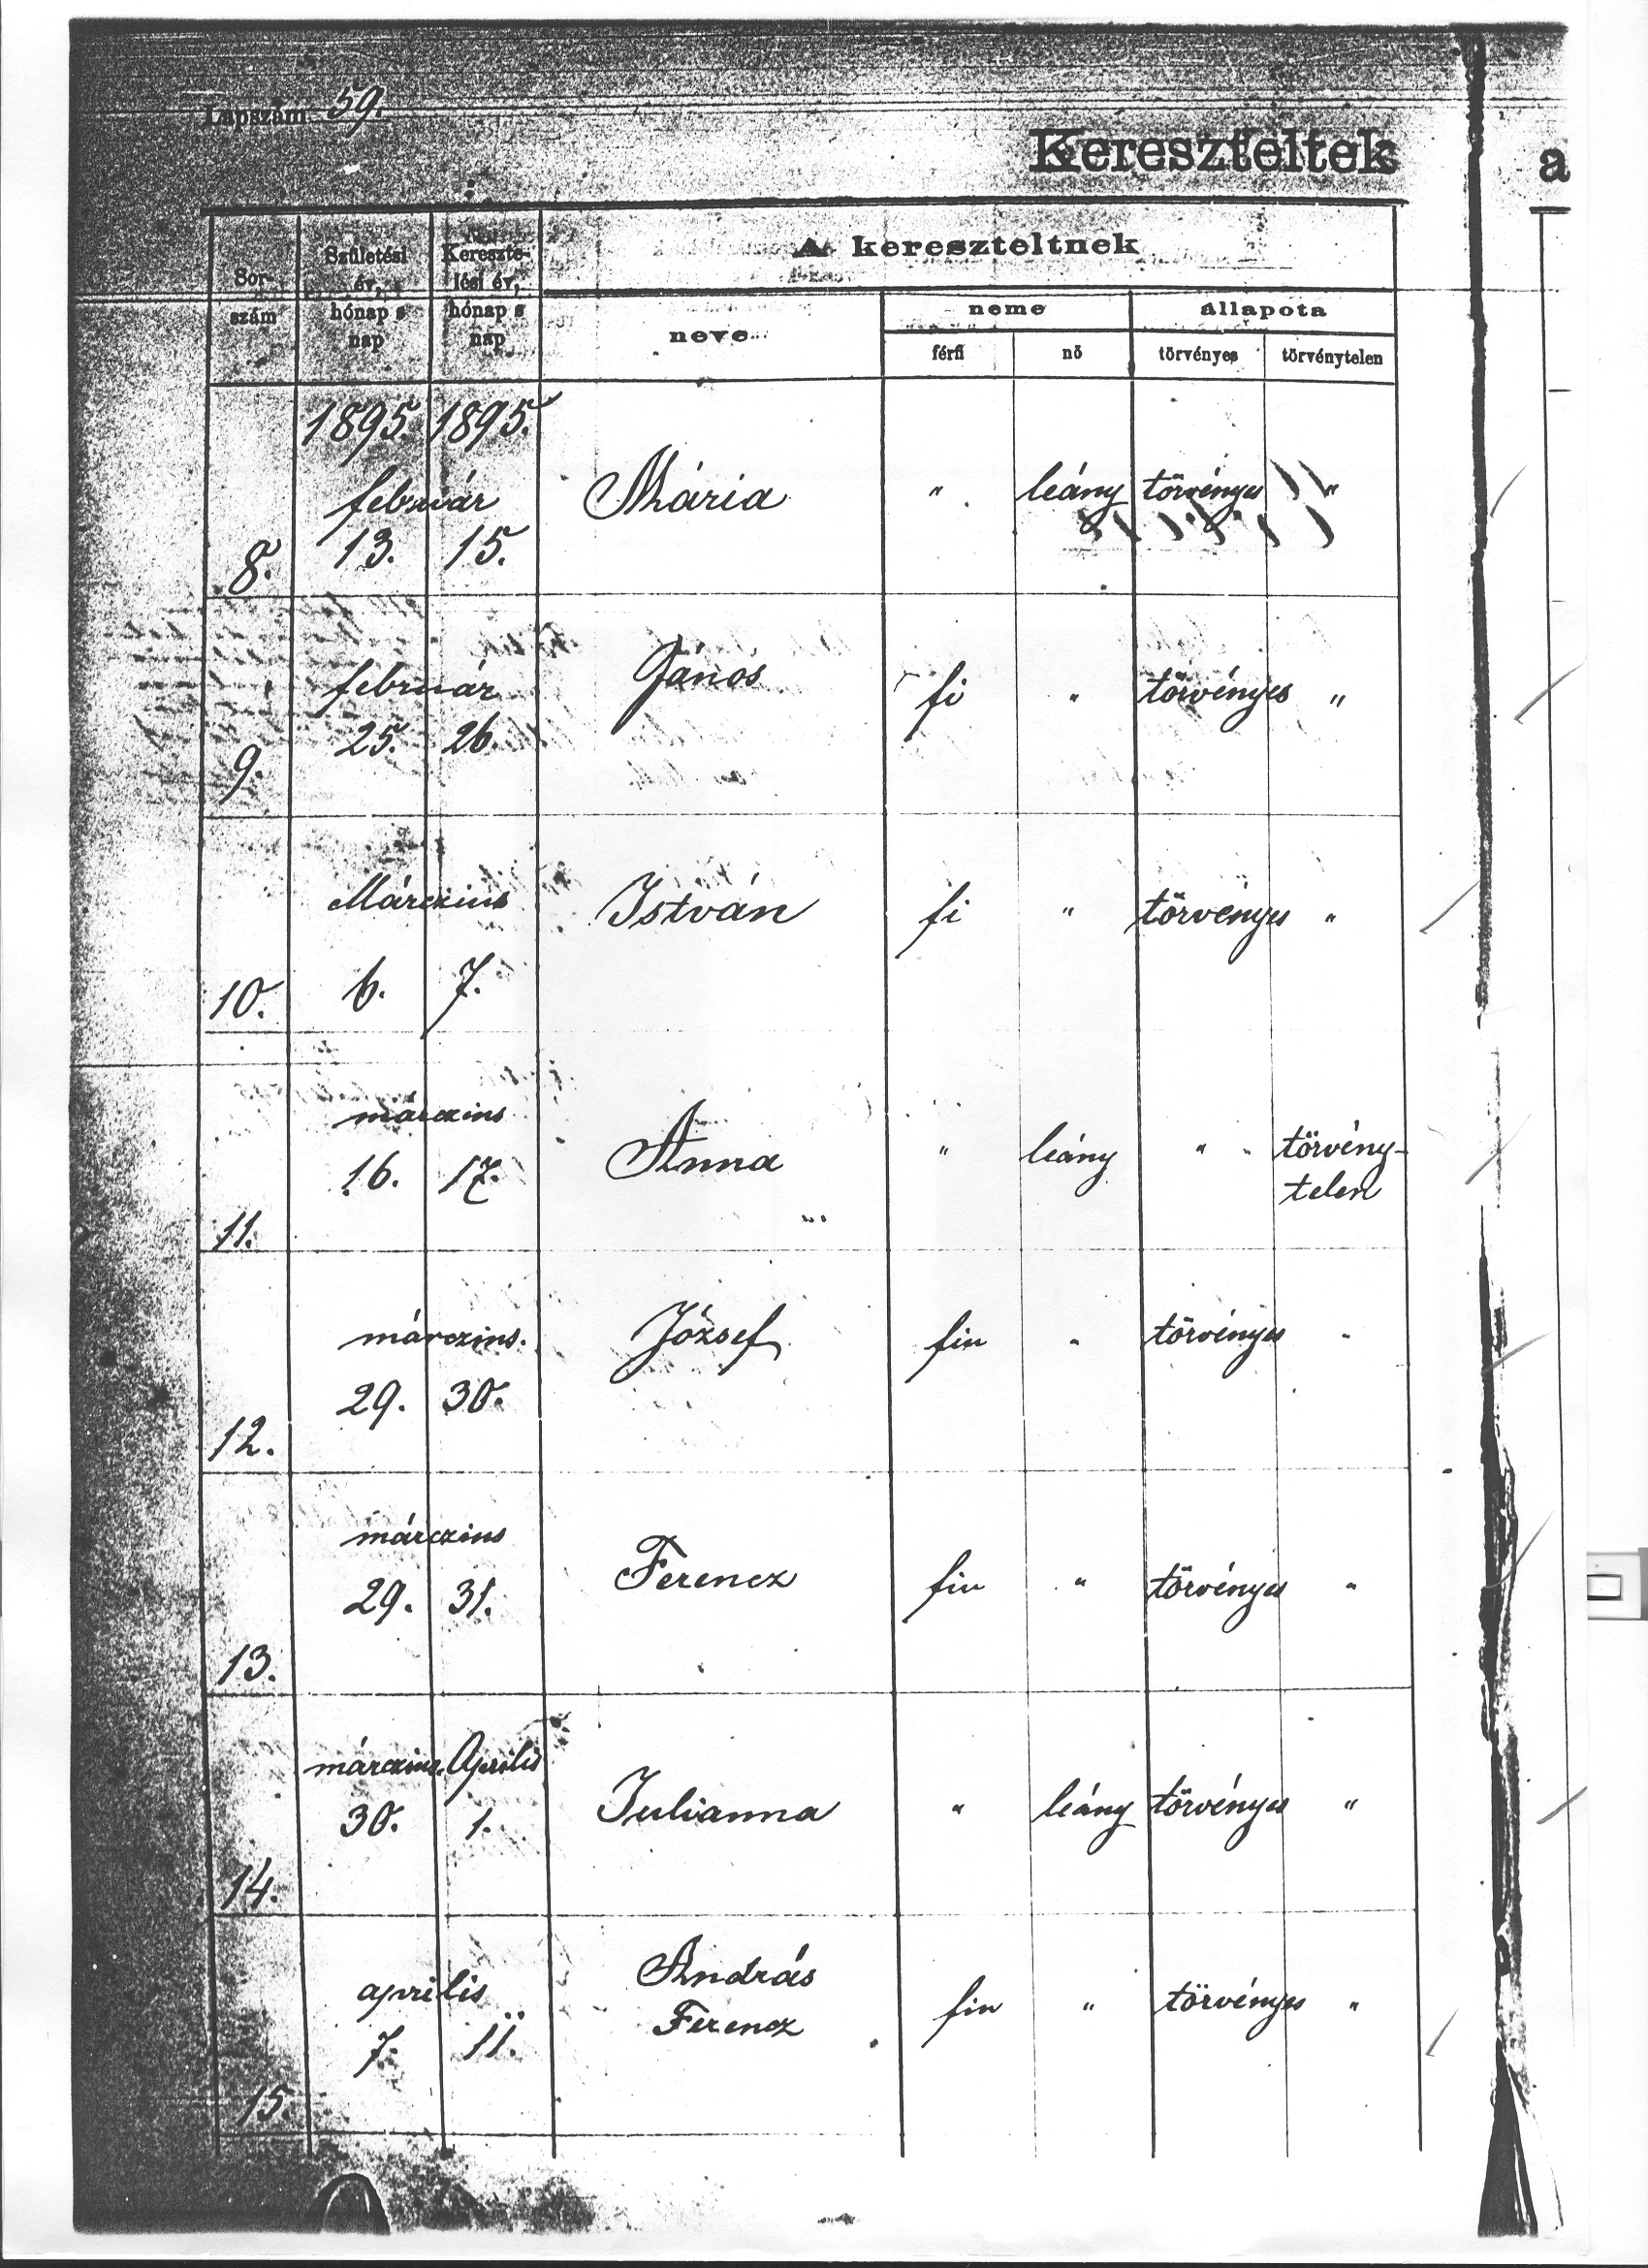 Lapszám 59.
Kereszteltek
a
Sor-
szám
Születési
év,
hónap s
nap
Kereszte-
lési év,
hónap s
nap
A kereszteltnek
neve
neme
állapota
férfi
nő
törvényes
törvénytelen
1895. 1895.
február
8. 13. 15. Mária " leány törvényes "
február
9. 25. 26. János fi " törvényes "
Márczius
10. 6. 7. István fi " törvényes "
márczius
11. 16. 17. Anna " leány " törvény-
telen
márczius.
12. 29. 30. József fiu " törvényes "
márczius
13. 29. 31. Ferencz fiu " törvényes "
márczius. Április
14. 30. 1. Julianna " leány törvényes "
április
15. 7. 11. András
Ferencz fiu " törvényes "